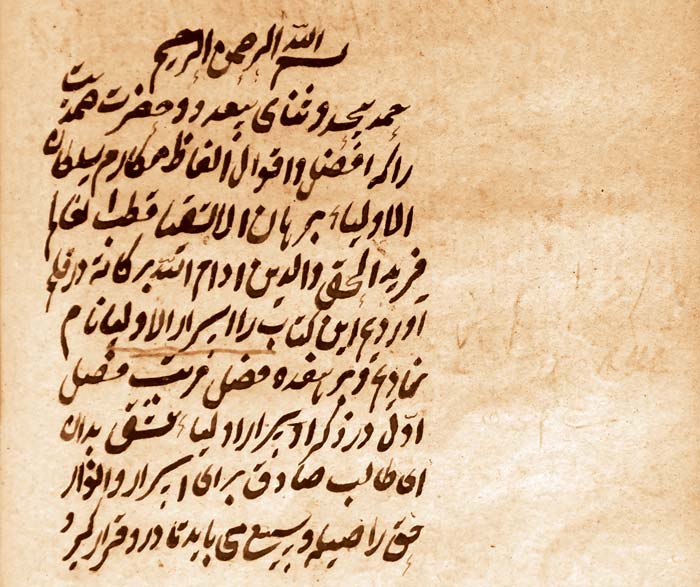 بسم الله الرحمن الرحیم
حمد بیحد و ثنای بیعدد و حضرت صمدیت
را که افضل و اقوال الفاظ مکارم سلطان
الاولیاء برهان الاتقیا قطب العالم
فرید الحق والدین ادام الله برکاته در قلم
آوردیم این کتاب را اسرار الاولیا نام
نهادیم و بر هفده فصل فصل
اول در ذکر اسرار اولیاء عشق بدان
ای طالب صادق برای اسرار و انوار
حق را وسیع می باید تا در و قرار گیرد